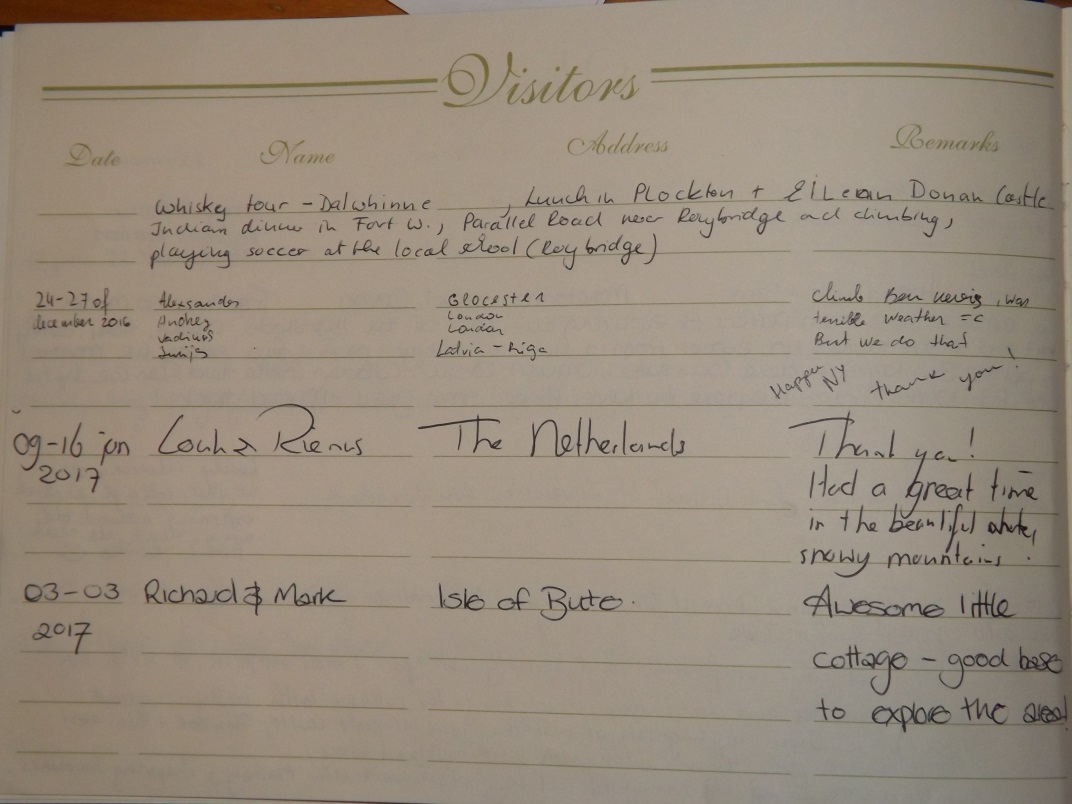 Visitors
Date Name Address Remarks
Whiskey tour - Dalwhinne , Lunch in Plockton + Eilean Donan Castle
Indian dinner in Fort W., Parallel Road near Roybridge and climbing,
playing soccer at the local school (Roybridge)
24-27 of Alexsander Glocester climb Ben nevis, was
december 2016 Andrey London terrible weather =c
Vadims London But we do that
Jurijs Latvia - Riga
Happy NY thank you!
09-16 jan & Rienus The Netherlands Thank you!
2017 Had a great time
in the beautiful white,
snowy mountains!
03-03 Richard & Mark Isle of Bute. Awesome little
2017
cottage - good base
to explore the area!